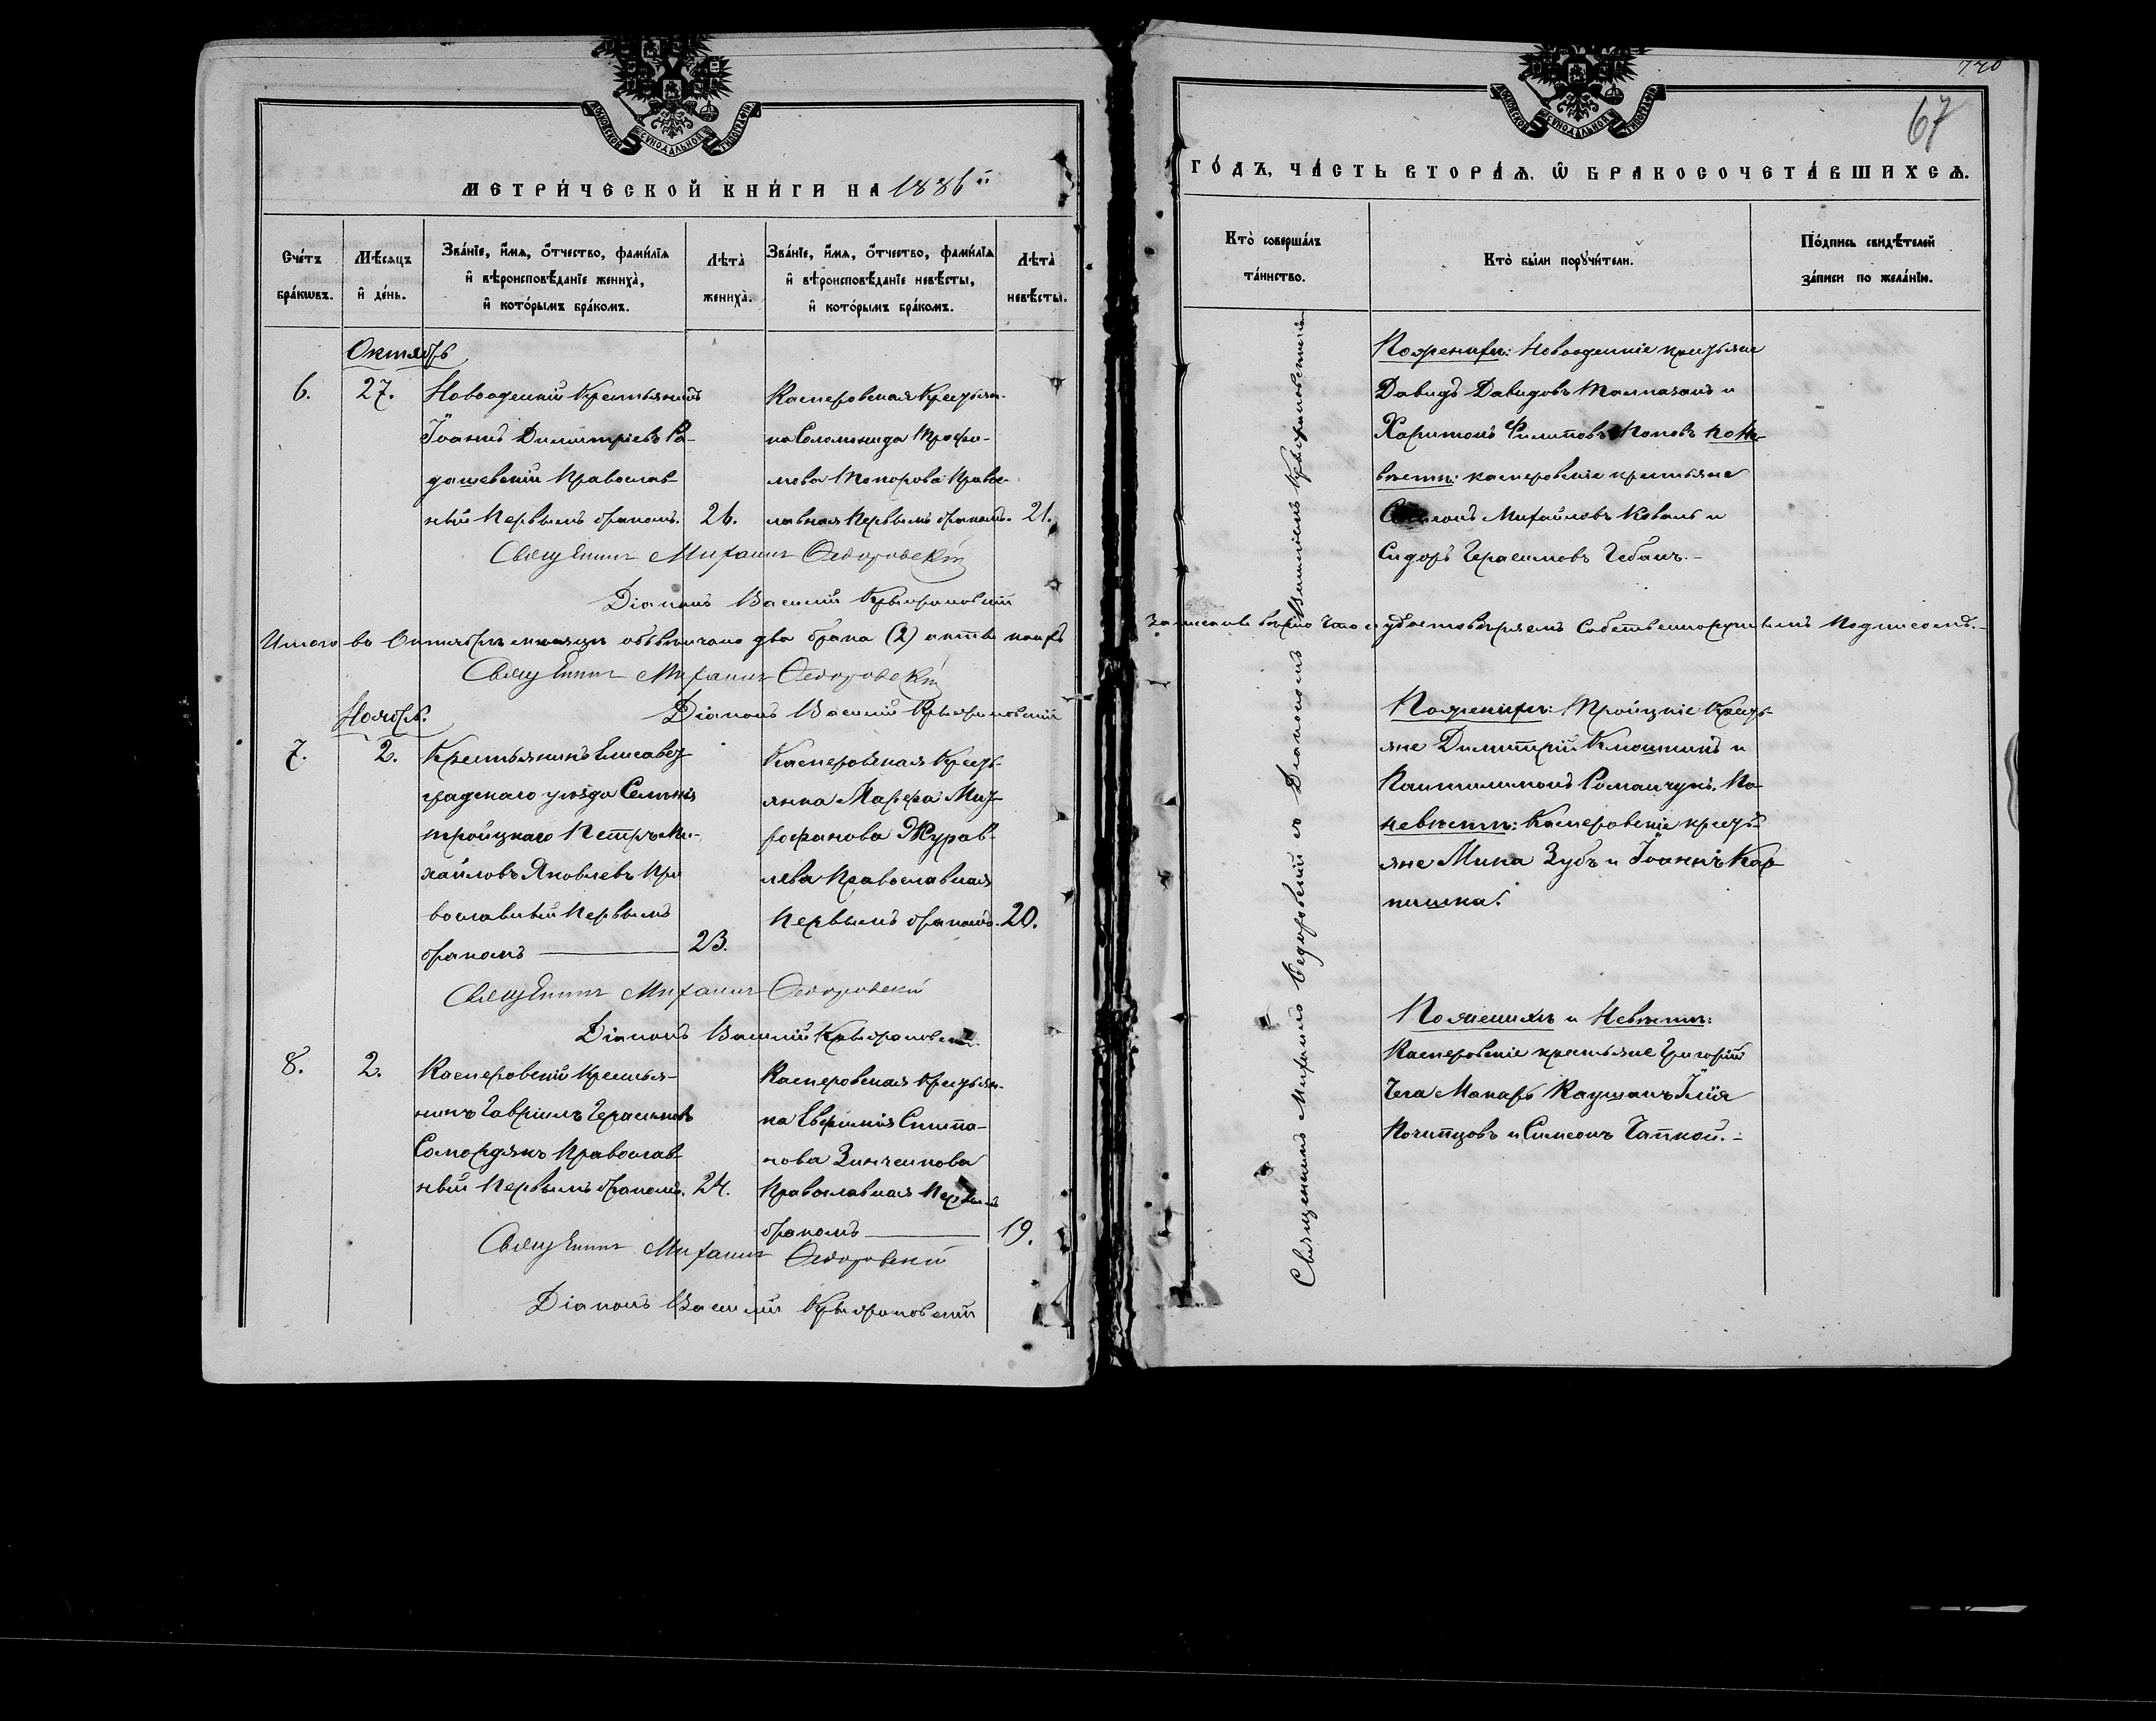 МОСКОВСКОЙ СѴНОДАЛЬНОЙ ТИПОГРАФІИ
МЕТРИ́ЧЕСКОЙ КНИ́ГИ НА 1886й
Сче́тъ бра́кѡвъ.
Мѣ́сяцъ и҆ де́нь.
Зва́нїе, и҆́мѧ, ѻ҆́тчество, фами́лїѧ и҆ вѣроисповѣ́данїе жениха̀, и҆ кото́рымъ бра́комъ.
Лѣта̀ жениха̀.
Зва́нїе, и҆́мѧ, ѻ҆́тчество, фами́лїѧ и҆ вѣроисповѣ́данїе невѣ́сты, и҆ кото́рымъ бра́комъ.
Лѣта̀ невѣ́сты.
Октябрь
6.
27.
Новоодескій Крестьянинъ
Іоаннъ Димитріевъ Ра-
дашевскій Православ-
ный Первымъ бракомъ.
26.
Касперовская Крестьян-
ка Соломонида Трофи-
мова Топорова Правос-
лавная Первымъ бракомъ.
21.
Священникъ Михаилъ Ѳедоровскій
Діаконъ Василій Крыжановскій
Итого въ Октябрѣ мѣсяцѣ обвѣнчано два брака (2) актъ коихъ
Священникъ Михаилъ Ѳедоровскій
Діаконъ Василій Крыжановскій
Ноябрь.
7.
2.
Крестьянинъ Елисавет-
градскаго уѣзда Селенія
Тройцкаго Петръ Ми-
хайловъ Яковлевъ Пра
вославный Первымъ
бракомъ
23.
Касперовская Кресть-
янка Марѳа Мит-
рофанова Журав-
лева Православная
Первымъ бракомъ.
20.
Священникъ Михаилъ Ѳедоровскій
Діаконъ Василій Крыжановскій
8.
2.
Касперовскій Крестья-
нинъ Гавріилъ Герасимовъ
Самордакъ Православ-
ный Первымъ бракомъ.
24.
Касперовская Крестьян-
ка Евфимія Степа-
нова Зинченкова
Православная Первымъ
бракомъ
19.
Священникъ Михаилъ Ѳедоровскій
Діаконъ Василій Крыжановскій
67
МОСКОВСКОЙ СѴНОДАЛЬНОЙ ТИПОГРАФІИ
ГО́ДЪ, ЧА́СТЬ ВТОРА́Ѧ, Ѡ҆ БРАКОСОЧЕТА́ВШИХСѦ.
Кто̀ соверша́лъ та́инство.
Кто̀ бы́ли порꙋчи́тели.
По́дпись свидѣ́телей за́писи по жела́нїю.
Священникъ Михаилъ Ѳедоровскій съ Діакономъ Василіемъ Крыжановскимъ
По женихѣ: Новоодескіе крестьяне
Давидъ Давидовъ Талпаланъ и
Харитонъ Филиповъ Поповъ по не-
вѣстѣ: касперовскіе крестьяне
Симеонъ Михайловъ Коваль и
Сидоръ Герасимовъ Чебанъ.
записанъ вѣрно что и удостовѣряемъ Собственноручнымъ Подписомъ.
По женихѣ: Тройцкіе Кресть-
яне Димитрій Клюшкинъ и
Пантилимонъ Романчукъ. По
невѣстѣ: Касперовскіе кресть-
яне Мина Зубъ и Іоаннъ Кар-
пишка.
По женихѣ и Невѣстѣ:
Касперовскіе крестьяне Григорій
Чега Макаръ Каушанъ Илія
Почитцовъ и Симеонъ Чапкой.